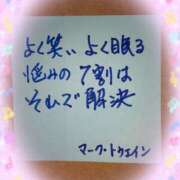 よく笑い よく眠る
悩みの7割は
それで解決
マーク・トウェイン